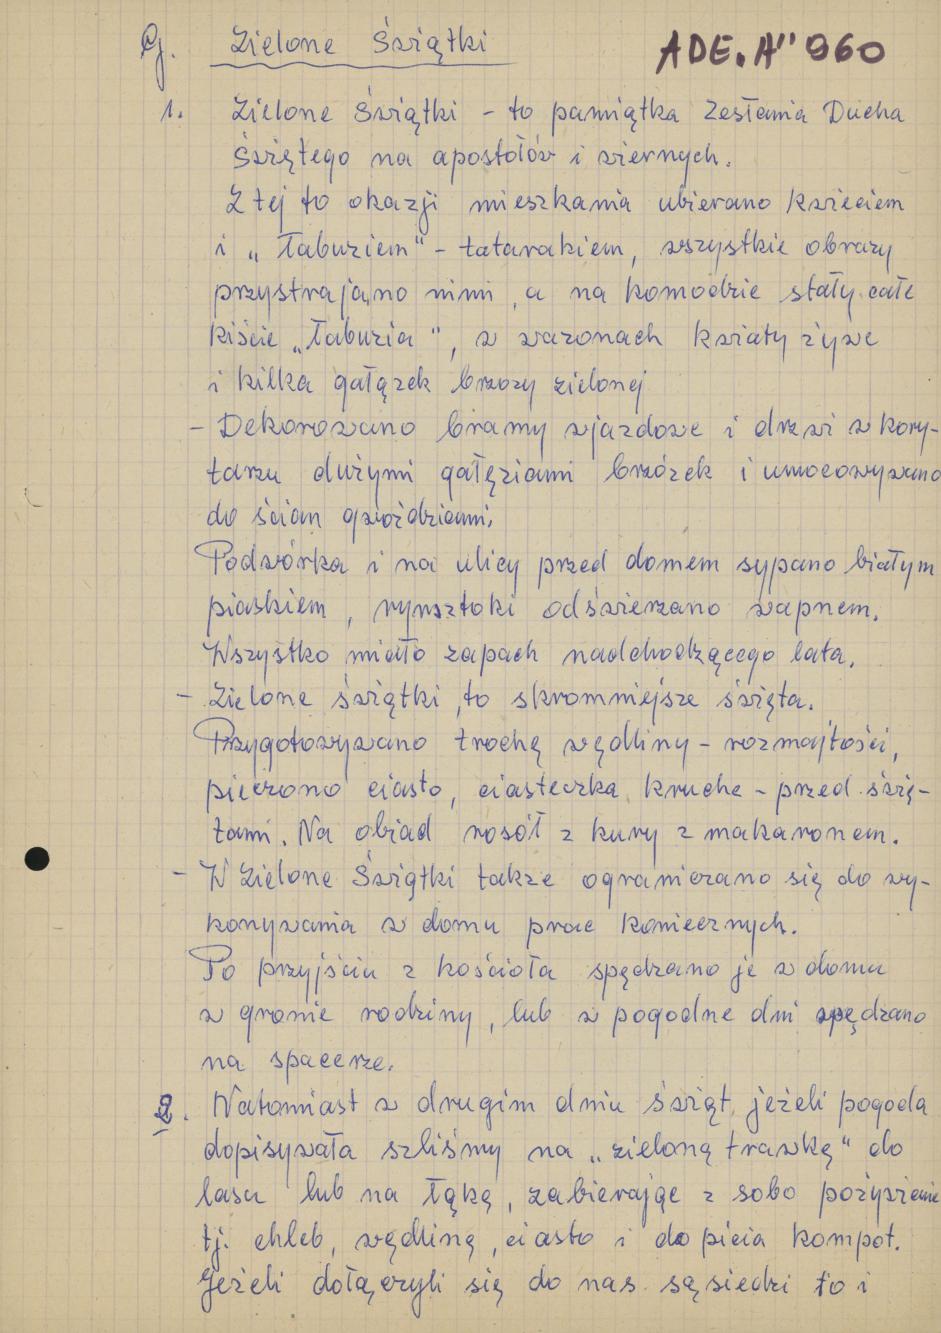 Cj. Zielone Świątki
ADE. "A" 960
1. Zielone Świątki - to pamiątka Zesłania Ducha
Świętego na apostołów i wiernych.
Z tej to okazji mieszkania ubierano kwieciem
i „łabuziem" - tatarakiem, wszystkie obrazy
przystrajano nimi, a na komodzie stały całe
kiście „łabuzia", w wazonach kwiaty żywe
i kilka gałązek brzozy zielonej
- Dekorowano bramy wjazdowe i drzwi w kory-
tarzu dużymi gałęziami brzózek i umocowywano
do ścian gwoździami.
Podwórka i na ulicy przed domem sypano białym
piaskiem, rynsztoki odświeżano wapnem.
Wszystko miało zapach nadchodzącego lata.
- Zielone świątki, to skromniejsze święta.
Przygotowywano trochę wędliny - rozmajtości,
pieczono ciasto, ciasteczka kruche - przed świę-
tami. Na obiad rosół z kury z makaronem.
- W Zielone Świątki także ograniczano się do wy-
konywania w domu prac koniecznych.
Po przyjściu z kościoła spędzano je w domu
w gronie rodziny, lub w pogodne dni spędzano
na spacerze.
2. Natomiast w drugim dniu świąt, jeżeli pogoda
dopisywała szliśmy na „zieloną trawkę" do
lasu lub na łąkę, zabierając z sobo pożywienie
tj. chleb, wędlinę, ciasto i do picia kompot.
Jeżeli dołączyli się do nas sąsiedzi to i